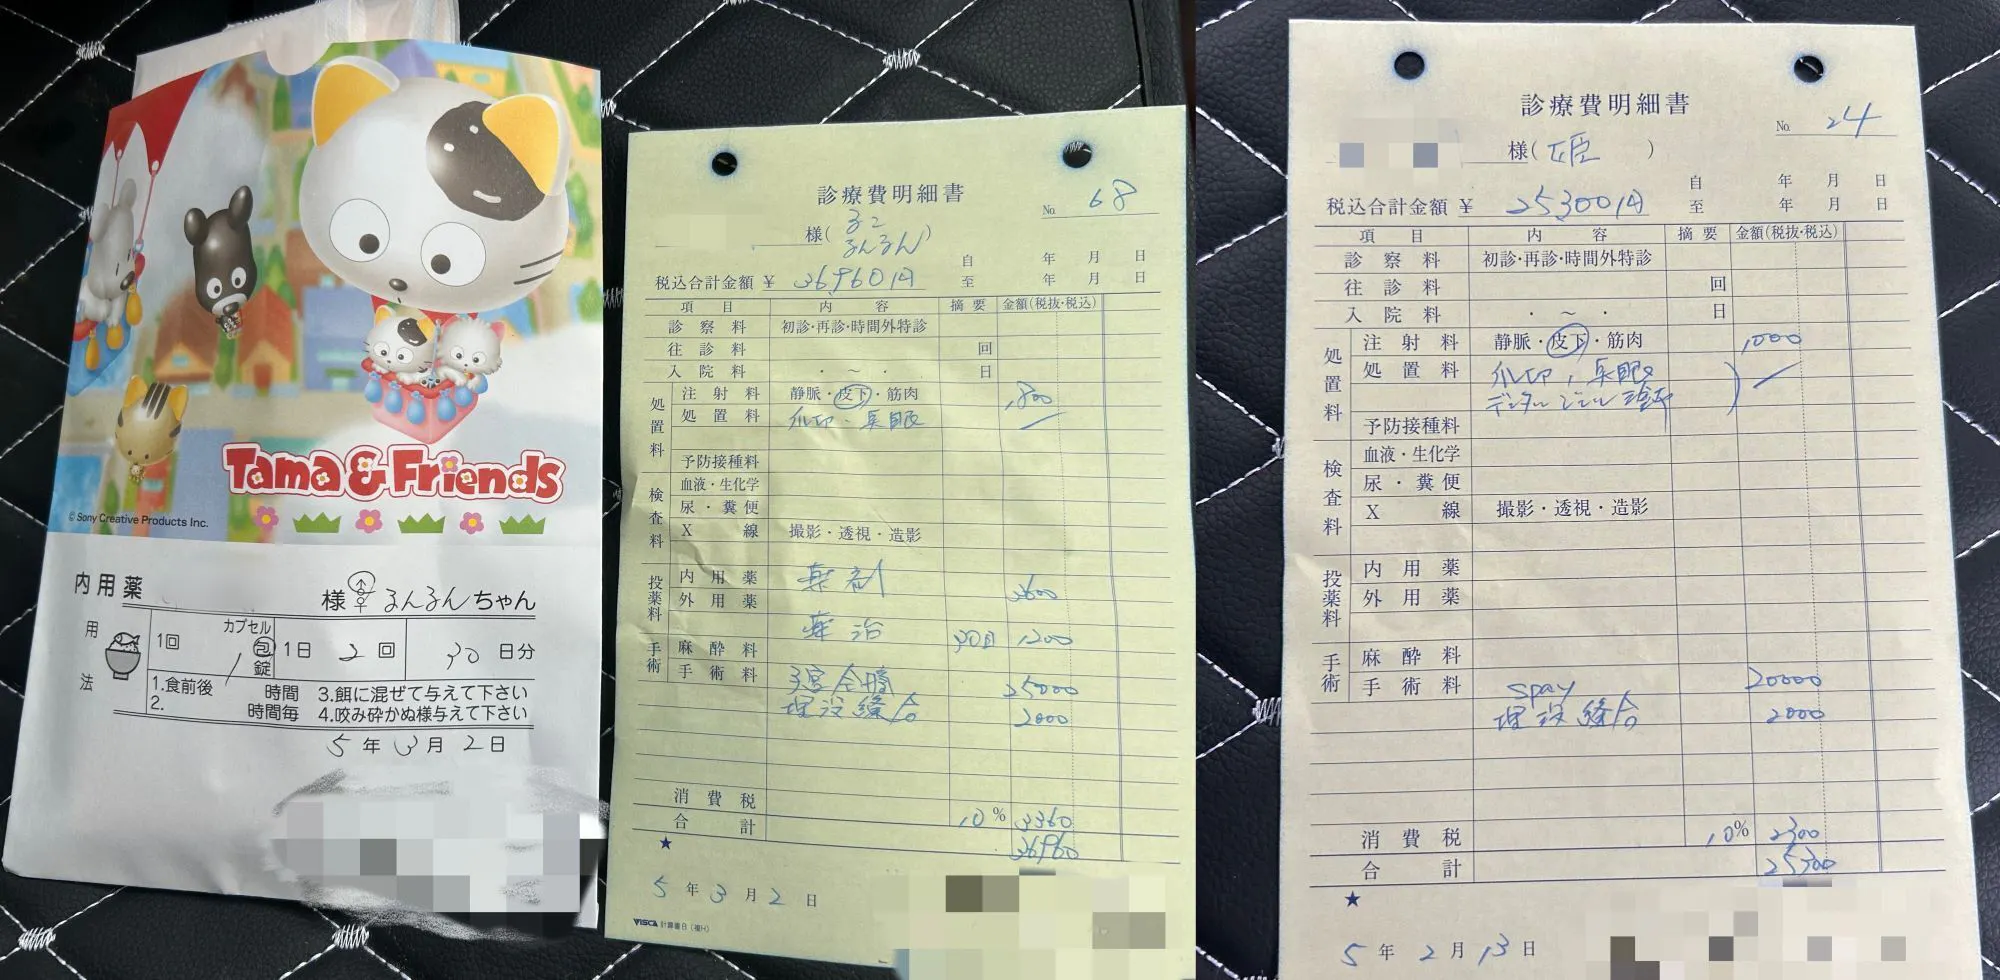 Tama & Friends
© Sony Creative Products Inc.
内用薬 様 るんるん ちゃん
用法
1回 1 カプセル 包 錠 1日 2 回 30 日分
1.食前後 時間 3.餌に混ぜて与えて下さい
2. 時間毎 4.咬み砕かぬ様与えて下さい
5 年 3 月 2 日
診療費明細書
No. 68
様( るこ るんるん )
自 年 月 日
税込合計金額 ¥ 36,960円 至 年 月 日
項目 内容 摘要 金額(税抜・税込)
診察料 初診・再診・時間外特診
往診料 回
入院料 ・ ～ ・ 日
処置料
注射料 静脈・皮下・筋肉 ,800
処置料 爪切・点眼
予防接種料
検査料
血液・生化学
尿・糞便
X線 撮影・透視・造影
投薬料
内用薬 3600
外用薬
30日 1200
手術
麻酔料
手術料 25000
埋没縫合 2000
消費税 10% 3360
合計 36960
★
5 年 3 月 2 日
VISCA 計算書B(複H)
診療費明細書
No. 24
様( 姫 )
自 年 月 日
税込合計金額 ¥ 25300円 至 年 月 日
項目 内容 摘要 金額(税抜・税込)
診察料 初診・再診・時間外特診
往診料 回
入院料 ・ ～ ・ 日
処置料
注射料 静脈・皮下・筋肉 1,000
処置料 爪切，点眼
デンタルジェル
予防接種料
検査料
血液・生化学
尿・糞便
X線 撮影・透視・造影
投薬料
内用薬
外用薬
手術
麻酔料
手術料 spay 20000
埋没縫合 2000
消費税 10% 2300
合計 25300
★
5 年 2 月 13 日